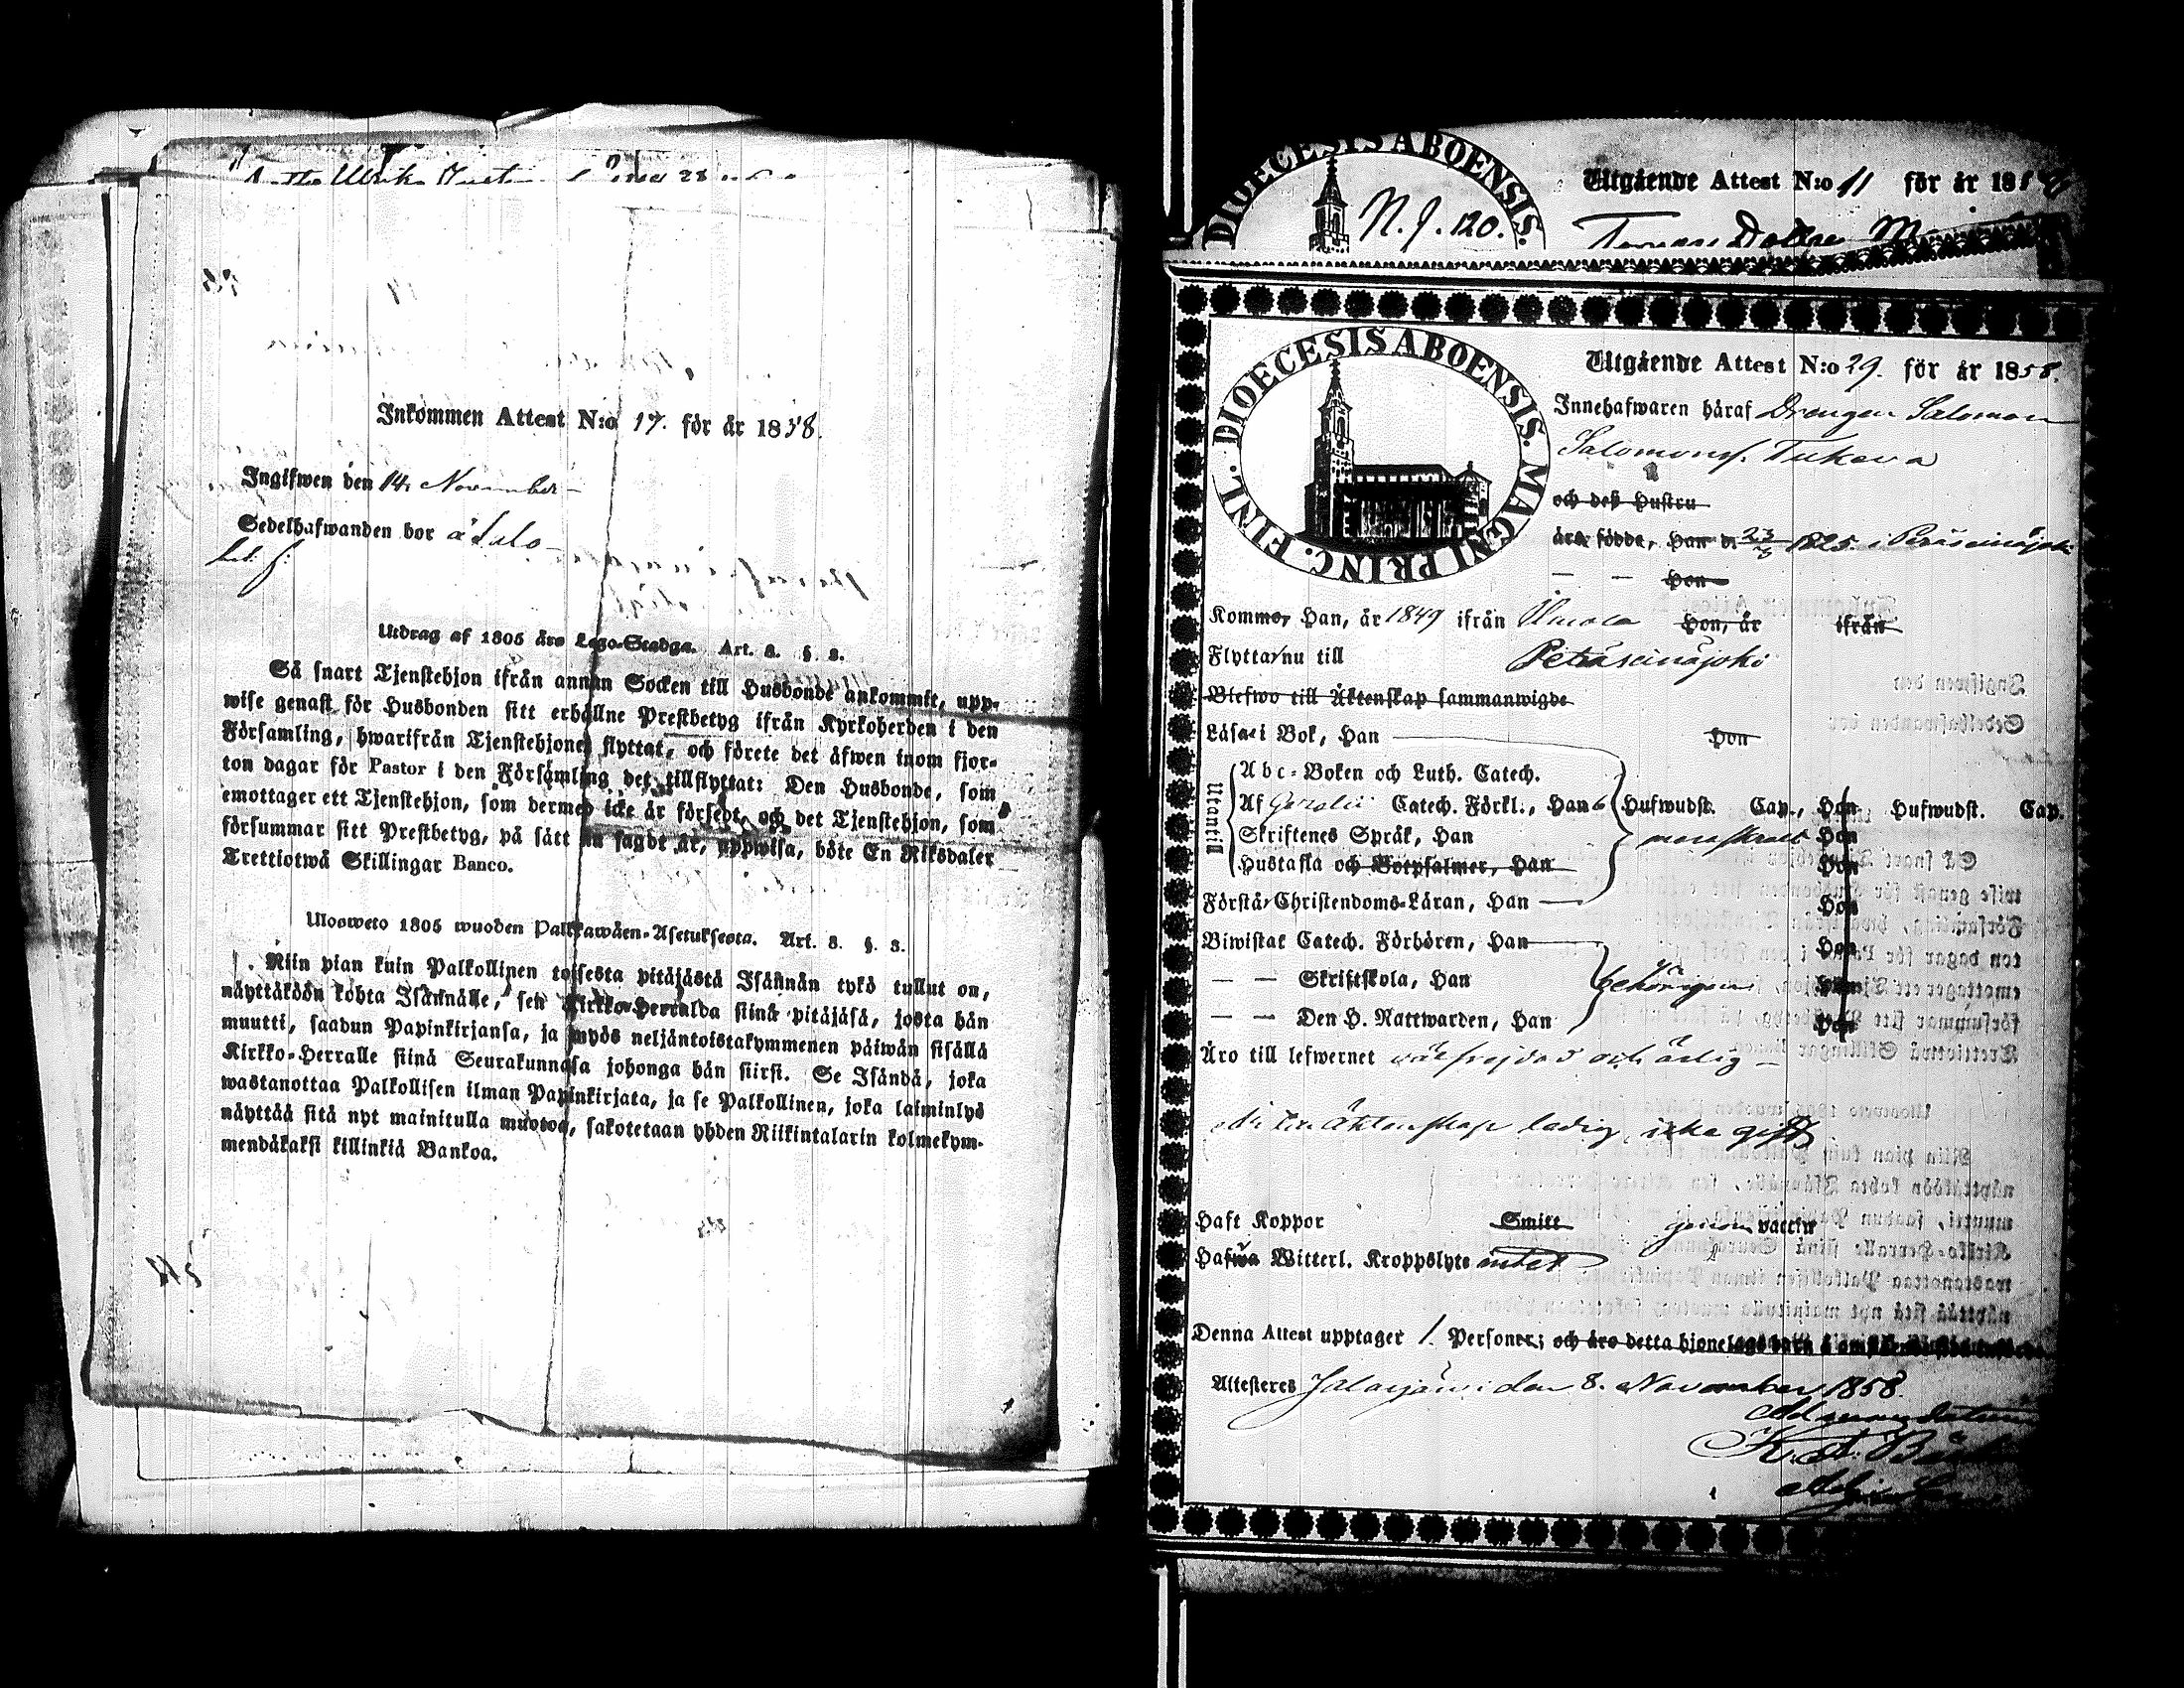 Inkommen Attest N:o 17. för år 1858.
Ingifwen den 14 November
Sedelhafwanden bor å Salo
Utdrag af 1805 års Lego-Stadga. Art. 8. §. 8.
Så snart Tjenstehjon ifrån annan Socken till Husbonde ankommit, upp-
wise genast för Husbonden sitt erhållne Prestbetyg ifrån Kyrkoherden i den
Församling, hwarifrån Tjenstehjonet flyttat, och förete det äfwen inom fjor-
ton dagar för Pastor i den Församling det tillflyttat: Den Husbonde, som
emottager ett Tjenstehjon, som dermed icke är försedt, och det Tjenstehjon, som
försummar sitt Prestbetyg, på sätt nu sagdt är, uppwisa, böte En Riksdaler
Trettiotwå Skillingar Banco.
Ulosweto 1805 wuoden Palkkawäen-Asetuksesta. Art. 8. §. 8.
Niin pian kuin Palkollinen toisesta pitäjästä Isännän tykö tullut on,
näyttäköön kohta Isännälle, sen Kirkko-Herralda siinä pitäjäsä, josta hän
muutti, saadun Papinkirjansa, ja myös neljäntoistakymmenen päiwän sisällä
Kirkko-Herralle siinä Seurakunnasa johonga hän siirsi. Se Isändä, joka
wastanottaa Palkollisen ilman Papinkirjata, ja se Palkollinen, joka laiminlyö
näyttää sitä nyt mainitulla muotoa, sakotetaan yhden Riikintalarin kolmekym-
mendäkaksi killinkiä Bankoa.
DIOECESIS ABOENSIS.
N. J. 120.
Utgående Attest N:o 11 för år 18
DIOECESIS ABOENSIS. MAGNI PRINC. FINL.
Utgående Attest N:o 29. för år 1858.
Innehafwaren häraf Drengen Salomon
Salomonss. Tukeva
och deß Hustru
äro födde, Han d. 23/3 1825. i Peräseinäjoki
— — Hon
Kommo, Han, år 1849 ifrån Ilmola Hon, år ifrån
Flytta nu till Peräseinäjoki
Blefwo till Äktenskap sammanwigde
Läsa i Bok, Han Hon
Utantill
Abc-Boken och Luth. Catech.
Af Catech. Förkl., Han 6 Hufwudst. Cap., Hon Hufwudst. Cap.
Skriftenes Språk, Han Hon
Hustafla och Botpsalmer, Han Hon
Förstå Christendoms-Läran, Han Hon
Biwistat Catech. Förhören, Han Hon
— — Skriftskola, Han behörigen Hon
— — Den H. Nattwarden, Han Hon
Äro till lefwernet wälfrejdad och ärlig
äktenskap ledig, icke gift
Haft Koppor Smitt genom vaccin
Hafwa Witterl. Kroppslyte intet
Denna Attest upptager 1. Personer; och äro detta hjonelags barn
Attesteres Jalasjärvi den 8. November 1858.